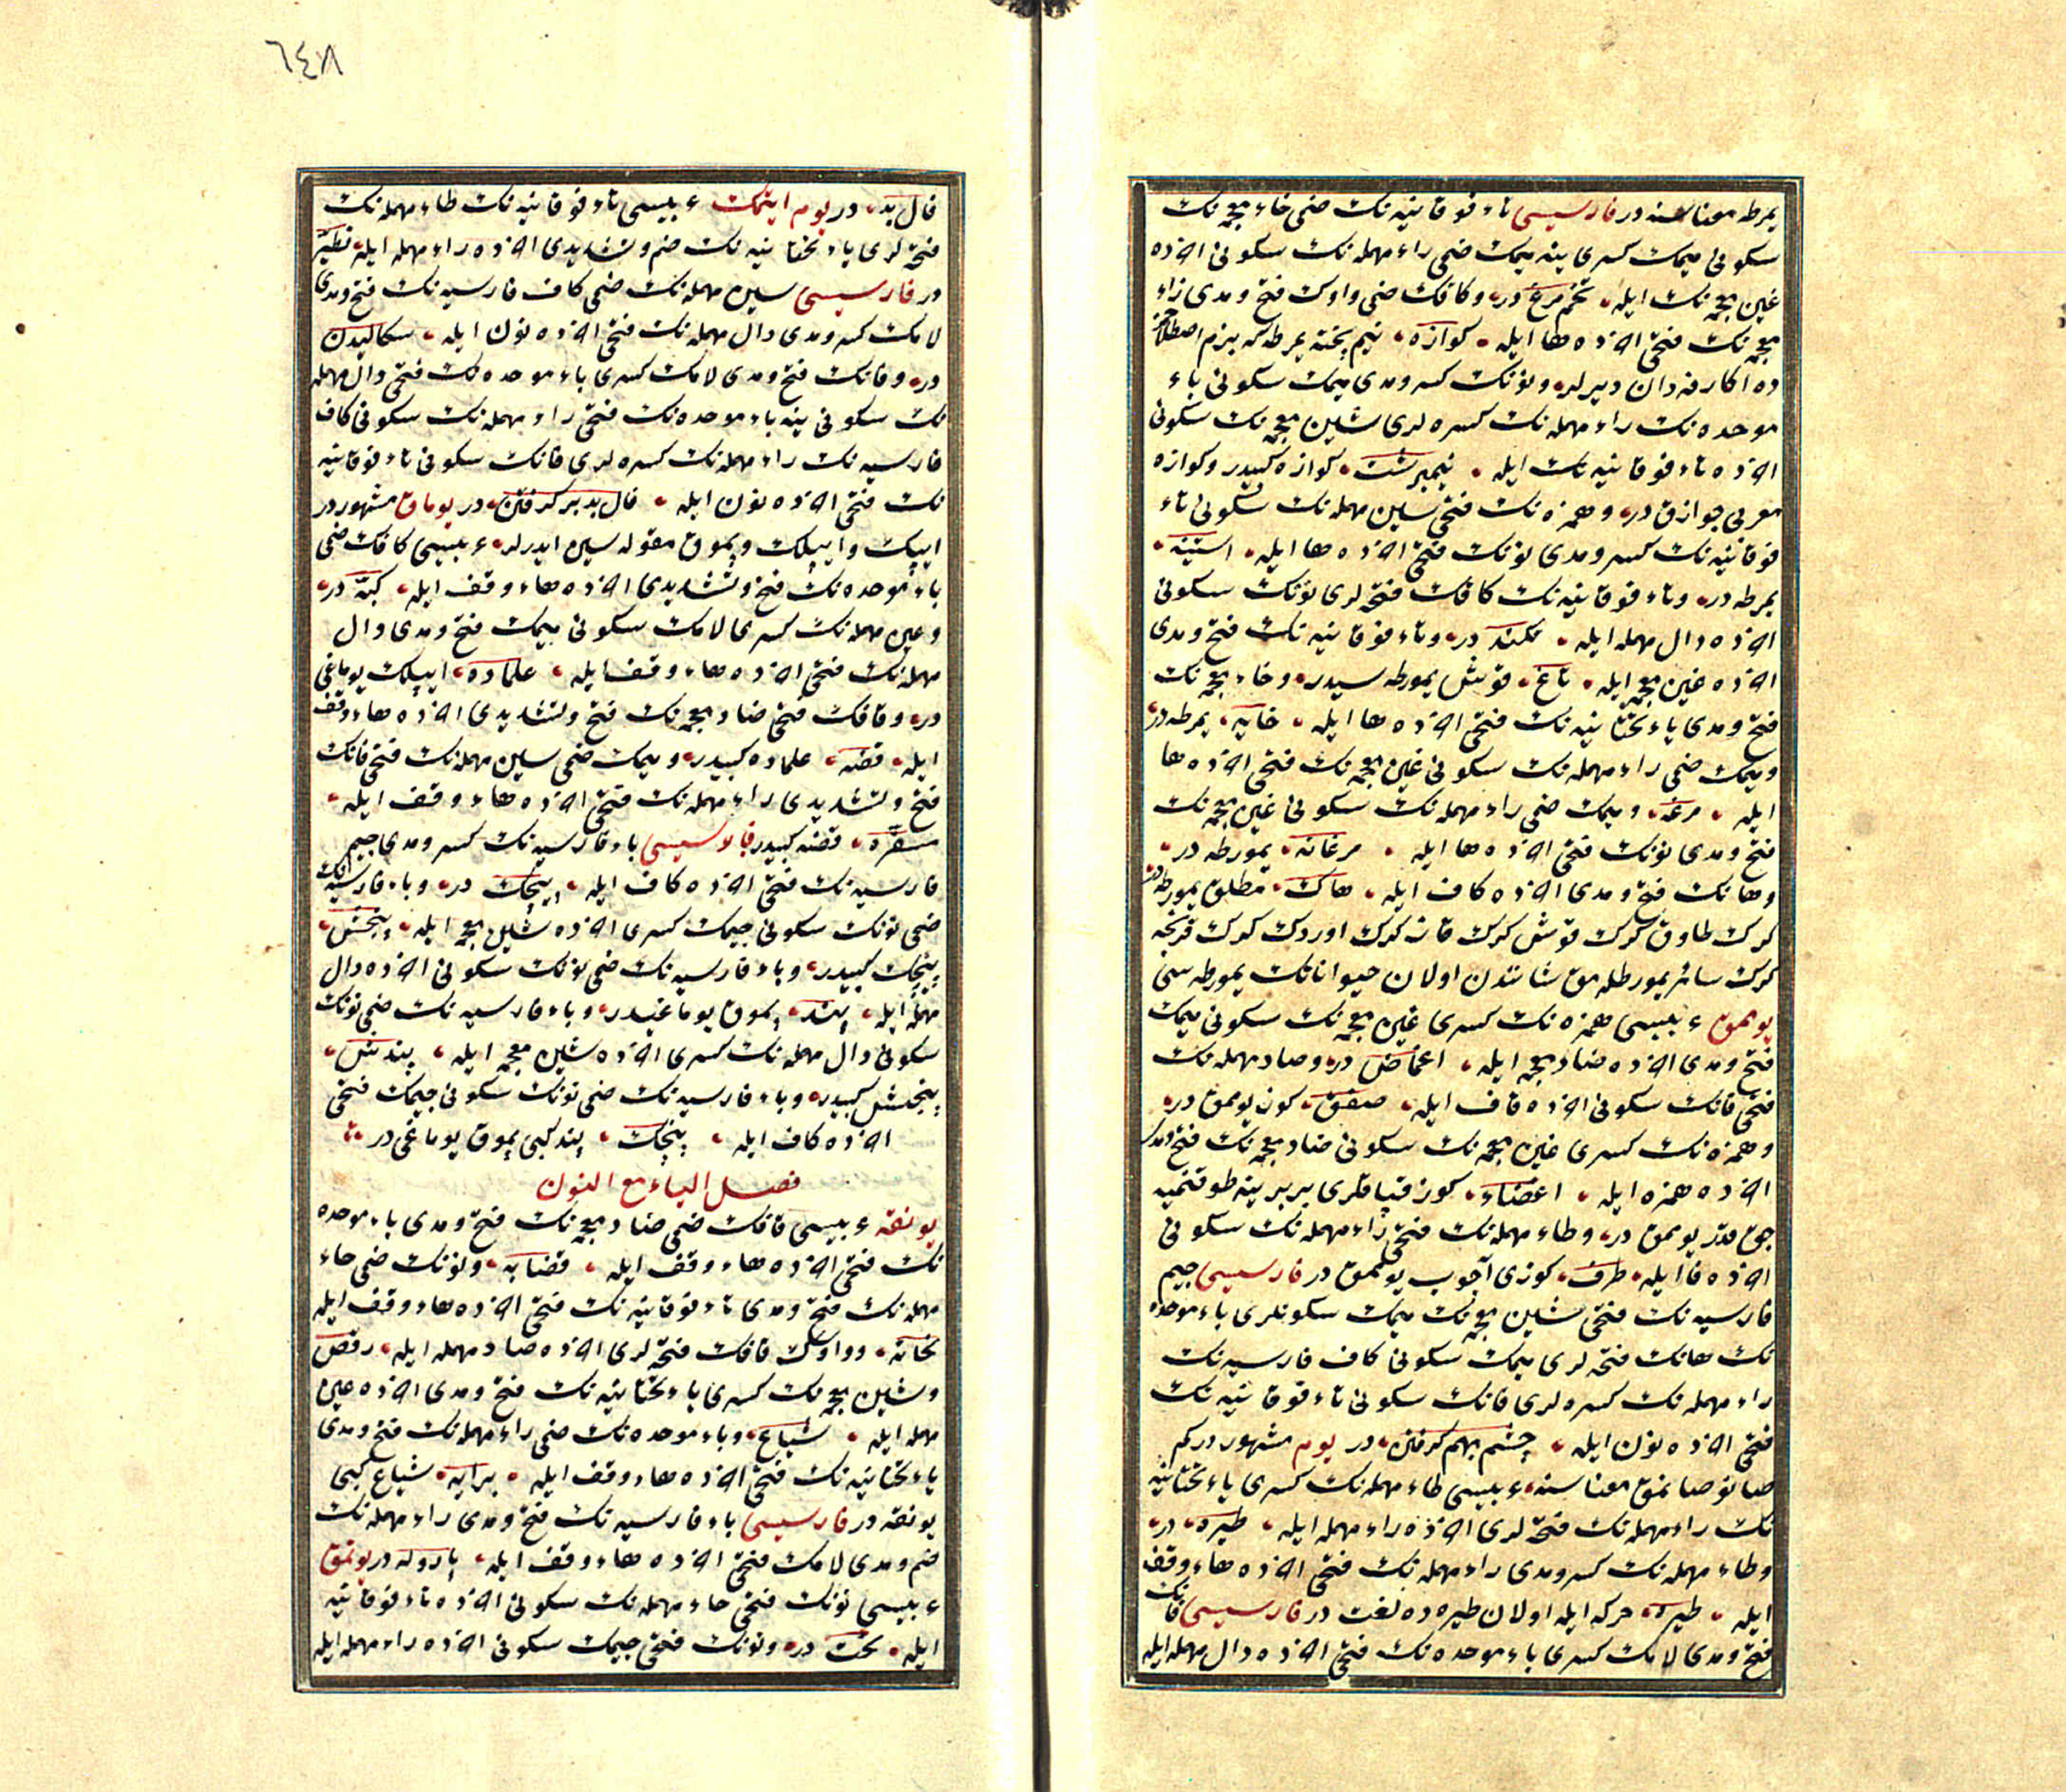 يمرطه معناسنه در فارسيسى تاء فوقانيه نك ضمى خاء معجمه نك
سكونى ميمك كسرى ينه ميمك ضمى راء مهمله نك سكونى اخرده
غين معجمه نك ايله تخم مرغ در وكافك ضمى واوك فتح ومدى زاء
معجمه نك فتحى اخرده ها ايله كوازه نيم پخته يمرطه كه بزم اصطلاحمز
ده اكا رفه دان ديرلر ونونك كسر ومدى ميمك سكونى باء
موحده نك راء مهمله نك كسره لرى شين معجمه نك سكونى
اخرده تاء فوقانيه نك ايله نيمبرشت كوازه كبيدر وكوازه
معربى جوازق در وهمزه نك فتحى سين مهمله نك سكونى تاء
فوقانيه نك كسر ومدى نونك فتحى اخرده ها ايله استينه
يمرطه در وتاء فوقانيه نك كافك فتحه لرى نونك سكونى
اخرده دال مهمله ايله تكند در وتاء فوقانيه نك فتح ومدى
اخرده غين معجمه ايله تاغ قوش يمورطه سيدر وخاء معجمه نك
فتح ومدى ياء تحتانيه نك فتحى اخرده ها ايله خايه يمرطه در
وميمك ضمى راء مهمله نك سكونى غين معجمه نك فتحى اخرده ها
ايله مرغه وميمك ضمى راء مهمله نك سكونى غين معجمه نك
فتح ومدى نونك فتحى اخرده ها ايله مرغانه يمورطه در
وهانك فتح ومدى اخرده كاف ايله هاك مطلق يمورطه در
كرك طاوق كرك قوش كرك قاز كرك اوردك كرك قرنجه
كرك سائر يمورطلمق شانندن اولان حيواناتك يمورطه سى
يوممق عربيسى همزه نك كسرى غين معجمه نك سكونى ميمك
فتح ومدى اخرده ضاد معجمه ايله اغماض در وصاد مهمله نك
فتحى فانك سكونى اخرده قاف ايله صفق كوز يوممق در
وهمزه نك كسرى غين معجمه نك سكونى ضاد معجمه نك فتح ومدى
اخرده همزه ايله اغضاء كوز قپاقلرى بربرينه طوقنميه
جق قدر يوممق در وطاء مهمله نك فتحى راء مهمله نك سكونى
اخرده فا ايله طرف كوزى آچوب يوممق در فارسيسى جيم
فارسيه نك فتحى شين معجمه نك ميمك سكونلرى باء موحده
نك هانك فتحه لرى ميمك سكونى كاف فارسيه نك
راء مهمله نك كسره لرى فانك سكونى تاء فوقانيه نك
فتحى اخرده نون ايله چشم بهم كرفتن در يوم مشهور در كم
صانو صانمق معناسنه عربيسى طاء مهمله نك كسرى ياء تحتانيه
نك راء مهمله نك فتحه لرى اخرده راء مهمله ايله طيره در
وطاء مهمله نك كسر ومدى راء مهمله نك فتحى اخرده هاء وقف
ايله طيره حركه ايله اولان طيره ده لغت در فارسيسى فانك
فتح ومدى لامك كسرى باء موحده نك فتحى اخرده دال مهمله ايله
٦٤٨
فال بد در يوم ايتمك عربيسى تاء فوقانيه نك طاء مهمله نك
فتحه لرى ياء تحتانيه نك ضم وتشديدى اخرده راء مهمله ايله تطير
در فارسيسى سين مهمله نك ضمى كاف فارسيه نك فتح ومدى
لامك كسر ومدى دال مهمله نك فتحى اخرده نون ايله سكاليدن
در وفانك فتح ومدى لامك كسرى باء موحده نك فتحى دال مهمله
نك سكونى ينه باء موحده نك فتحى راء مهمله نك سكونى كاف
فارسيه نك راء مهمله نك كسره لرى فانك سكونى تاء فوقانيه
نك فتحى اخرده نون ايله فال بد بر كرفتن در يوماق مشهور در
ايپك وايپلك وپموق مقوله سين ايدرلر عربيسى كافك ضمى
باء موحده نك فتح وتشديدى اخرده هاء وقف ايله كبه در
وعين مهمله نك كسرى لامك سكونى ميمك فتح ومدى دال
مهمله نك فتحى اخرده هاء وقف ايله علماده ايپلك يوماغى
در وقافك فتحى ضاد معجمه نك فتح وتشديدى اخرده هاء وقف
ايله قضه علماده كبيدر وميمك ضمى سين مهمله نك فتحى قانك
فتح وتشديدى راء مهمله نك فتحى اخرده هاء وقف ايله
مسقره قضه كبيدر فارسيسى باء فارسيه نك كسر ومدى جيم
فارسيه نك فتحى اخرده كاف ايله پيچك در وباء فارسيه نك
ضمى نونك سكونى جيمك كسرى اخرده شين معجمه ايله پنجش
پيچك كبيدر وباء فارسيه نك ضمى نونك سكونى اخرده دال
مهمله ايله پند پموق يوماغيدر وباء فارسيه نك ضمى نونك
سكونى دال مهمله نك كسرى اخرده شين معجمه ايله پندش
پنجش كبيدر وباء فارسيه نك ضمى نونك سكونى جيمك فتحى
اخرده كاف ايله پنجك پند كبى پموق يوماغى در
فصل الياء مع النون
يونغه عربيسى قافك ضمى ضاد معجمه نك فتح ومدى باء موحده
نك فتحى اخرده هاء وقف ايله قضابه ونونك ضمى حاء
مهمله نك فتح ومدى تاء فوقانيه نك فتحى اخرده هاء وقف ايله
نحاته وواوك قافك فتحه لرى اخرده صاد مهمله ايله وقص
وشين معجمه نك كسرى ياء تحتانيه نك فتح ومدى اخرده عين
مهمله ايله شياع وباء موحده نك ضمى راء مهمله نك فتح ومدى
ياء تحتانيه نك فتحى اخرده هاء وقف ايله برايه شياع كبى
يونغه در فارسيسى باء فارسيه نك فتح ومدى راء مهمله نك
ضم ومدى لامك فتحى اخرده هاء وقف ايله پاروله در يونمق
عربيسى نونك فتحى حاء مهمله نك سكونى اخرده تاء فوقانيه
ايله نحت در ونونك فتحى جيمك سكونى اخرده راء مهمله ايله